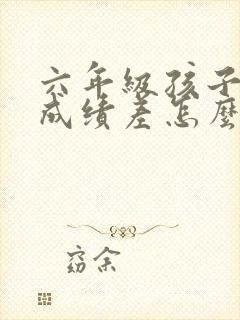 六年级孩子
成绩差怎麼
窈余